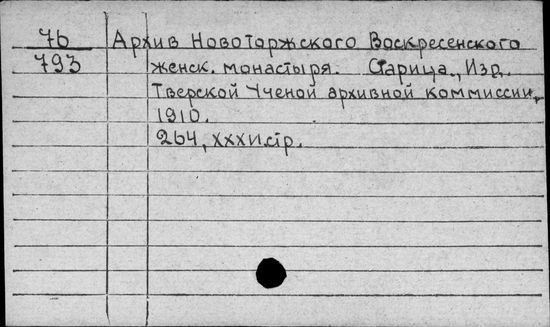 76 Архив Новоторжского Воскресенского
793 женск. монастыря. Старица., Изд.
Тверской Ученой архивной коммиссии,
1910.
264, XXXVI стр.